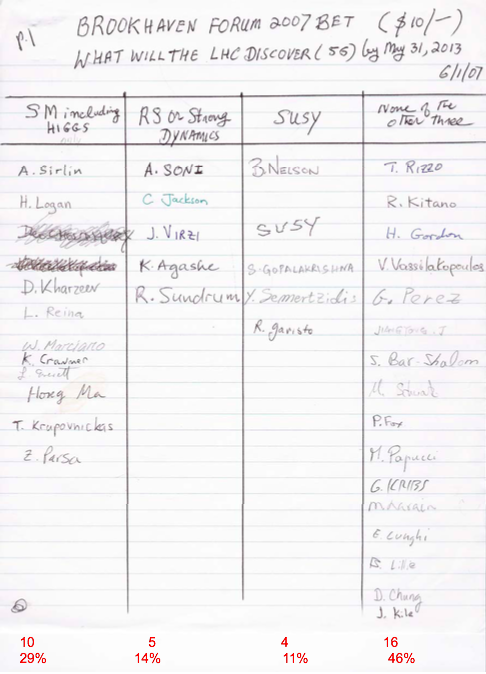 p.1 BROOKHAVEN FORUM 2007 BET ($10/-)
WHAT WILL THE LHC DISCOVER (5σ) by May 31, 2013
6/1/07
SM including HIGGS
RS or Strong DYNAMICS
SUSY
None of the other three
A. Sirlin A. SONI B. NELSON T. RIZZO
H. Logan C Jackson R. Kitano
J. VIRZI SUSY H. Gordon
K. Agashe S. GOPALAKRISHNA V. Vassilakopoulos
D. Kharzeev R. Sundrum Y. Semertzidis G. Perez
L. Reina R. garisto
W. Marciano S. Bar-Shalom
K. Cranmer
L. Everett
Hong Ma M.
T. Krupovnickas P. Fox
Z. Parsa M. Papucci
G. KRIBS
M. Narain
E. Lunghi
D. Chung
J. Kile
10 5 4 16
29% 14% 11% 46%